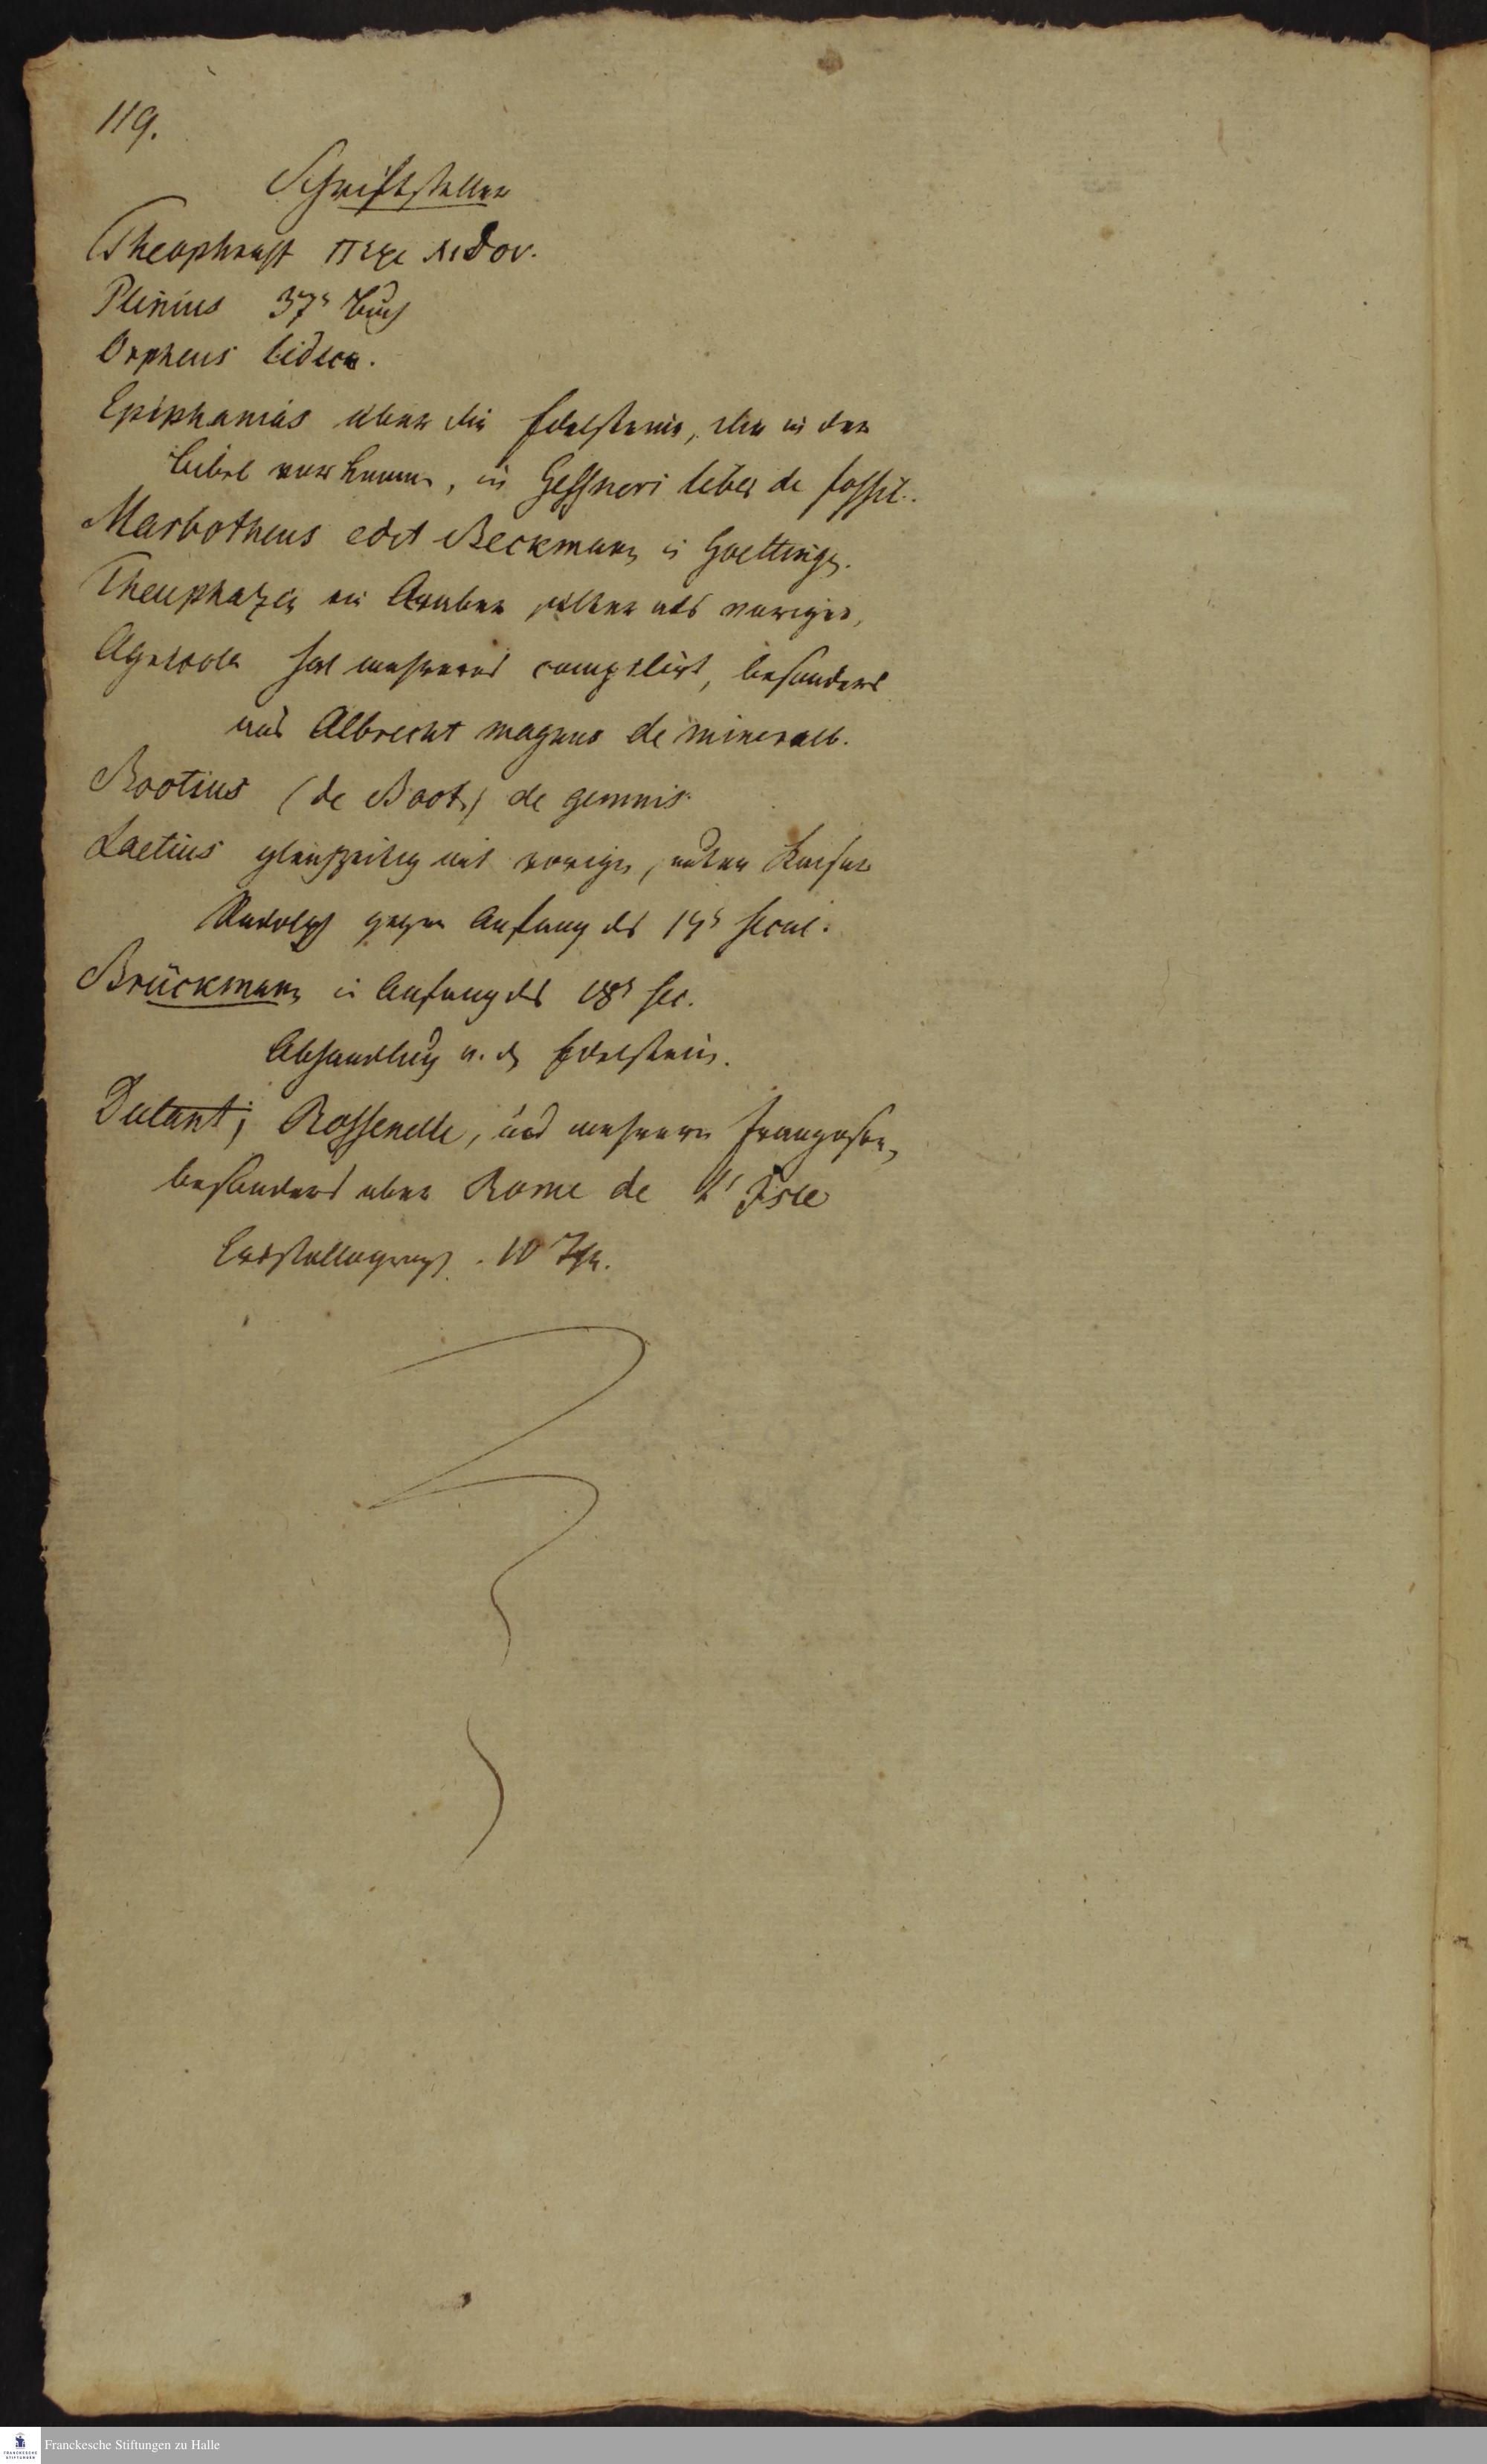 119.
Schriftsteller
Theophrast περι λιδον.
Plinius 37s Buch
Orpheus
Epiphanias über die Edelsteine, die in der
Bibel vorkommen, in Gessneri liber de fossil.
Marbotheus edit Beckmann in Goetting.
ein Araber, älter als voriger,
Agricola hat mehreres compilirt, besonders
aus Albrecht magnus de mineralb.
Bootius (de Boot) de gemmis.
Laetius gleichzeitig mit vorign, unter Kaiser
Rudolph gegen Anfang des 17s secul.
Brückmann in Anfang des 18s sec.
Abhandlung v. d. Edelstein.
Dutant; Rossenelle, und mehrere Franzosen,
besonders aber Rome de l'Isle
Cristallograph. 10 Thr.
Franckesche Stiftungen zu Halle